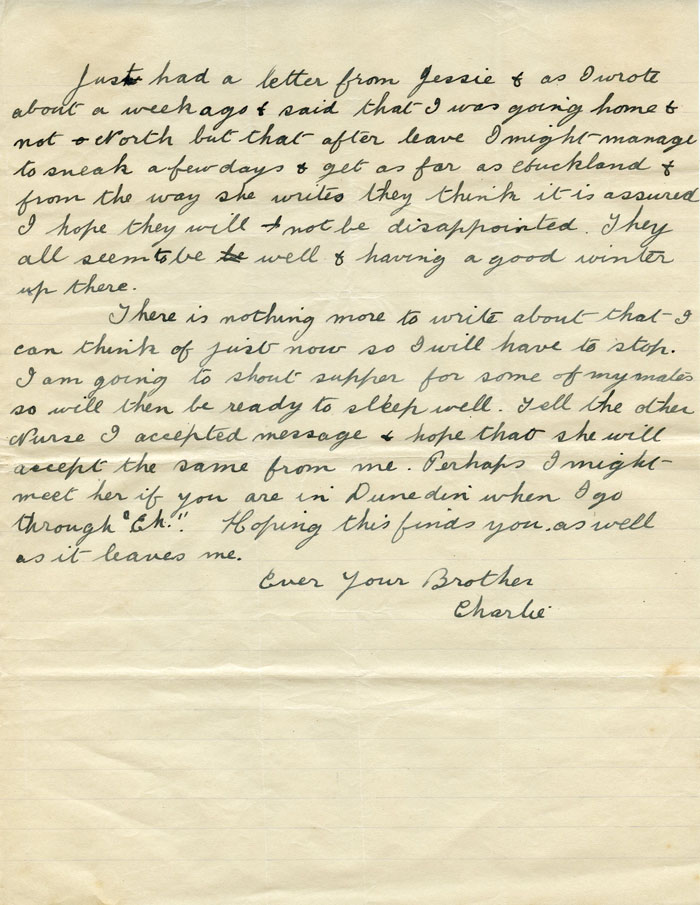 Just had a letter from Jessie & as I wrote
about a week ago & said that I was going home &
not North but that after leave I might manage
to sneak a few days & get as far as Auckland &
from the way she writes they think it is assured
I hope they will not be disappointed. They
all seem to be be well & having a good winter
up there.
There is nothing more to write about that I
can think of just now so I will have to stop.
I am going to shout supper for some of my mates
so will then be ready to sleep well. Tell the other
Nurse I accepted message & hope that she will
accept the same from me. Perhaps I might
meet her if you are in Dunedin when I go
through "Eh." Hoping this finds you as well
as it leaves me.
Ever Your Brother
Charlie